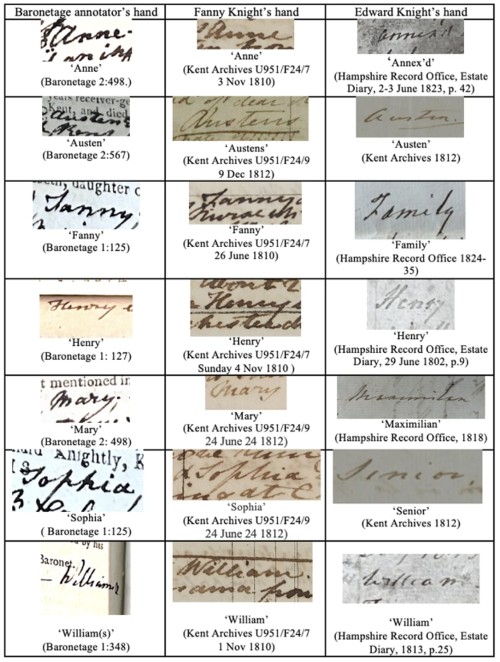 Baronetage annotator's hand
Fanny Knight's hand
Edward Knight's hand
Anne-
'Anne'
(Baronetage 2:498.)
Anne
'Anne'
(Kent Archives U951/F24/7
3 Nov 1810)
Annex'd
'Annex'd'
(Hampshire Record Office, Estate
Diary, 2-3 June 1823, p. 42)
years receiver-ge
Kent, and died
Austen
Kent
'Austen'
(Baronetage 2:567)
Austens
'Austens'
(Kent Archives U951/F24/9
9 Dec 1812)
Austen
'Austen'
(Kent Archives 1812)
daughter
Fanny
'Fanny'
(Baronetage 1:125)
Fanny
'Fanny'
(Kent Archives U951/F24/7
26 June 1810)
Family
'Family'
(Hampshire Record Office 1824-
35)
Henry
'Henry'
(Baronetage 1: 127)
Henry
'Henry'
(Kent Archives U951/F24/7
Sunday 4 Nov 1810 )
Henry
'Henry'
(Hampshire Record Office, Estate
Diary, 29 June 1802, p.9)
t mentioned in
Mary,
'Mary'
(Baronetage 2: 498)
Mary
'Mary'
(Kent Archives U951/F24/9
24 June 24 1812)
Maximilian
'Maximilian'
(Hampshire Record Office, 1818)
Knightly, K
Sophia
'Sophia'
( Baronetage 1:125)
Sophia
'Sophia'
(Kent Archives U951/F24/9
24 June 24 1812)
Senior.
'Senior'
(Kent Archives 1812)
by his
Baronet.
- Williams
'William(s)'
(Baronetage 1:348)
William
'William'
(Kent Archives U951/F24/7
1 Nov 1810)
William
'William'
(Hampshire Record Office, Estate
Diary, 1813, p.25)